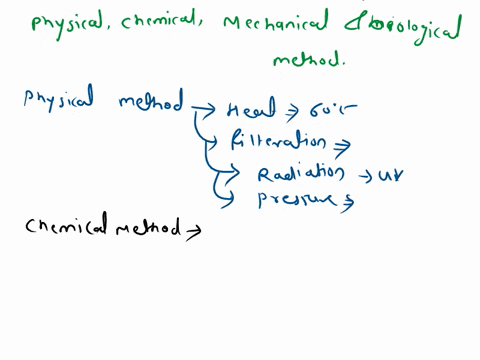 physical, chemical, Mechanical & biological
method.
Physical method → Heat → 60°C
→ Filteration →
→ Radiation → UV
→ Pressure →
Chemical method →